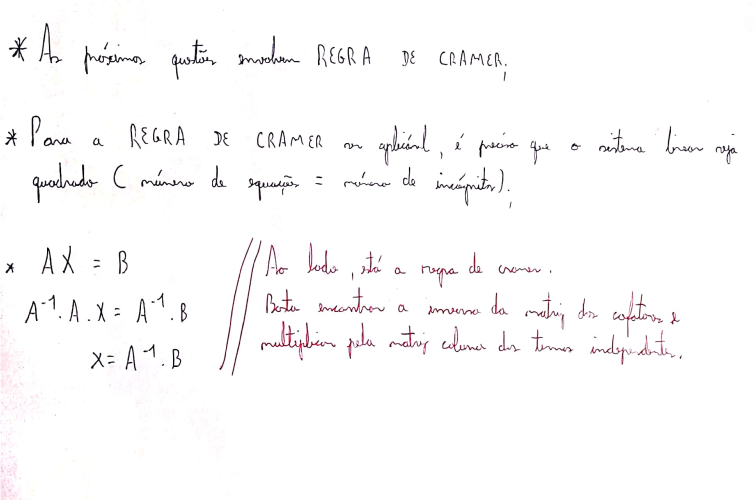 * As próximas questões envolvem REGRA DE CRAMER;
* Para a REGRA DE CRAMER ser aplicável, é preciso que o sistema linear seja
quadrado (número de equações = número de incógnitas);
* AX = B
A⁻¹. A . X = A⁻¹. B
X = A⁻¹. B
Ao lado, está a regra de cramer.
Basta encontrar a inversa da matriz dos cofatores e
multiplicar pela matriz coluna dos termos independentes.